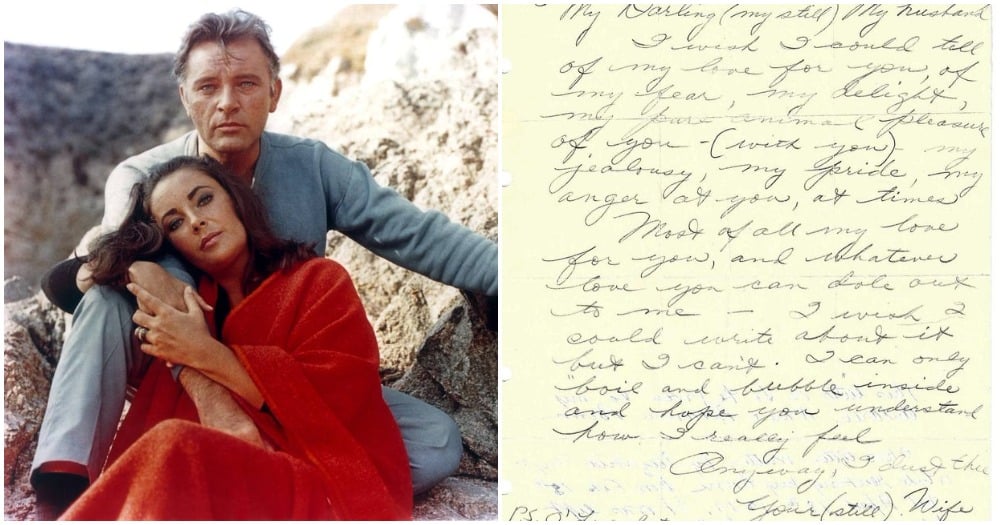 My Darling (my still) My husband
I wish I could tell
of my love for you, of
my fear, my delight,
my pure animal pleasure
of you - (with you) - my
jealousy, my pride, my
anger at you, at times
Most of all my love
for you, and whatever
love you can dole out
to me - I wish I
could write about it
but I can't. I can only
"boil and bubble" inside
and hope you understand
how I really feel
Anyway, I lust thee
Your (still) Wife
P.S.